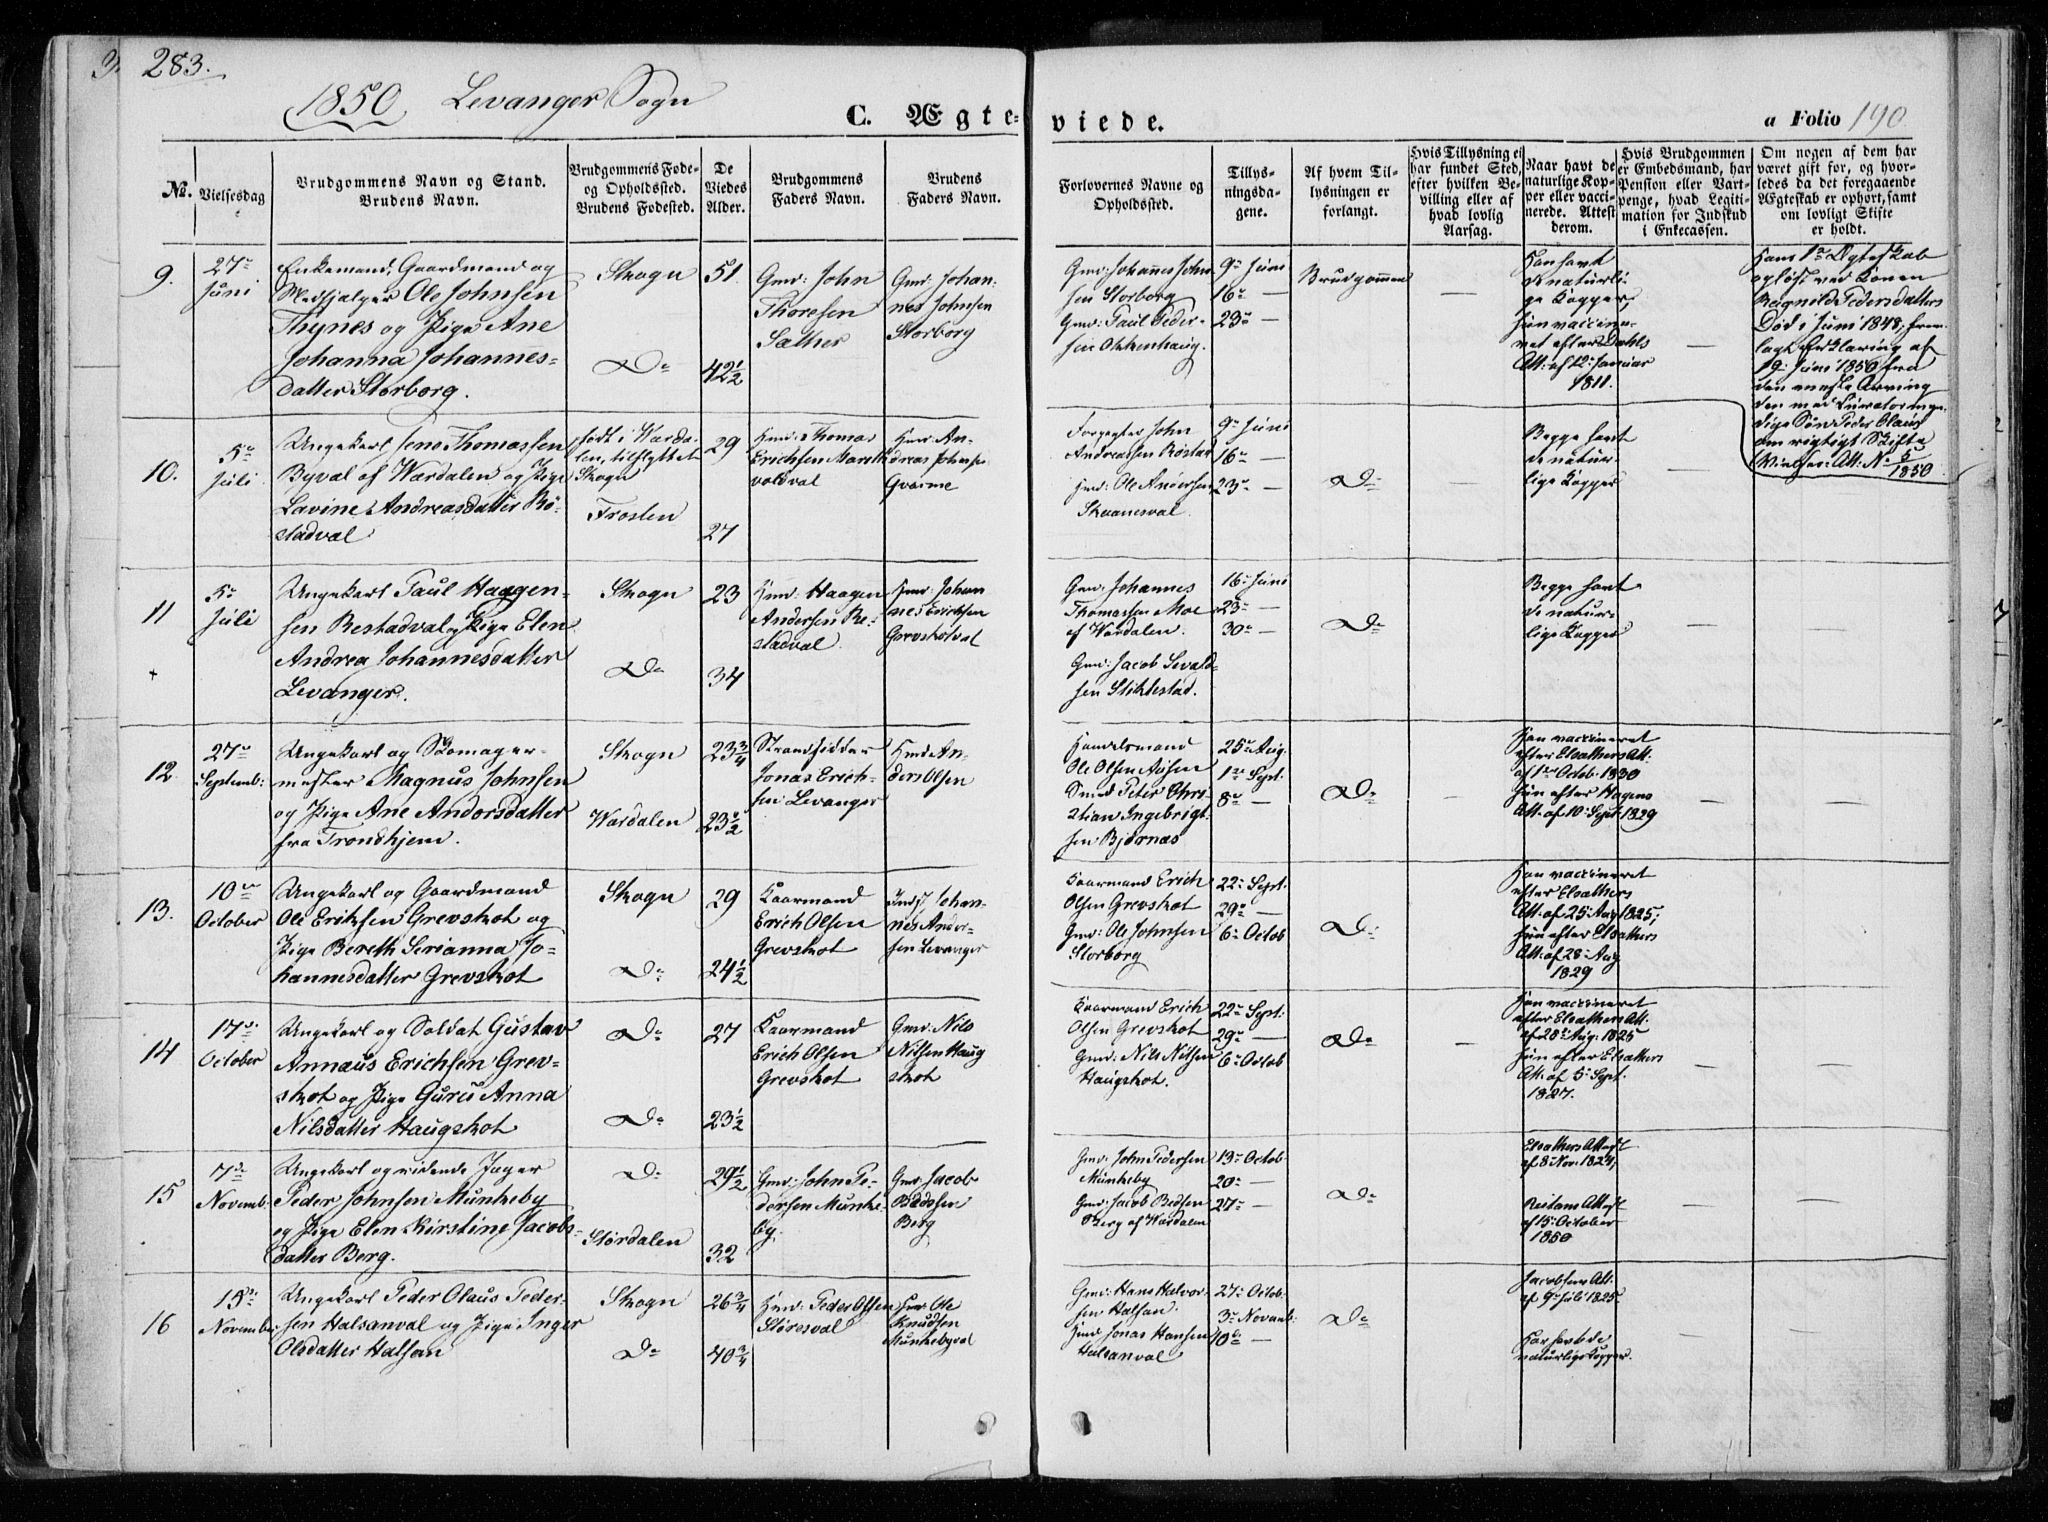 283.
1850 Levanger Sogn
C. Ægte-
viede.
a Folio 190
No.
Vielsesdag
Brudgommens Navn og Stand.
Brudens Navn.
Brudgommens Føde-
og Opholdssted.
Brudens Fødested.
De
Viedes
Alder.
Brudgommens
Faders Navn.
Brudens
Faders Navn.
Forlovernes Navne og
Opholdssted.
Tillys-
ningsda-
gene.
Af hvem Til-
lysningen er
forlangt.
Hvis Tillysning ei
har fundet Sted,
efter hvilken Be-
villing eller af
hvad lovlig
Aarsag.
Naar havt de
naturlige Kop-
per eller vacci-
nerede. Attest
derom.
Hvis Brudgommen
er Embedsmand, har
Pension eller Vart-
penge, hvad Legiti-
mation for Indskud
i Enkecassen.
Om nogen af dem har
været gift før, og hvor-
ledes da det foregaaende
Ægteskab er ophørt, samt
om lovligt Skifte
er holdt.
9.
27de
Juni
Enkemand, Gaardmand og
Medhjælper Ole Johnsen
Thynes og Pige Ane
Johanna Johannes-
datter Storborg.
Skogn
Do
51
42 1/2
Gmd: John
Thoresen
Sæther
Gmd: Johan-
nes Johnsen
Storborg
Gmd: Johannes John-
sen Storborg
Gmd: Paul Peder-
sen Okkenhaug.
9de Juni
16de —
23de —
Brudgommen
—
Han havt
de naturli-
ge Kopper,
hun vaccine-
ret efter Dahls
Att: af 12te Januar
1811.
—
Hans 1ste Ægteskab
opløst ved Konen
Ragnild Pedersdatters
Død i Juni 1848, frem-
lagt Erklæring af
19. Juni 1850 fra
den eneste Arving
den med Curator myn-
dige Søn Peder Olaus
om rigtigt Skifte
Vielses: Att: No 5/1850
10.
5te
Juli
Ungekarl Jens Thomassen
Byval af Værdalen og Pige
Lavine Andreasdatter Rø-
stadval
født i Værda-
len, tilflyttet
Skogn
Frosten
29
27
Hmd: Thomas
Erichsen
Hmd: An-
dreas Johns:
Forpagter John
Andreassen Røstad
Hmd: Ole Andersen
Skaanesval.
9de Juni
16de —
23de —
Do
—
Begge havt
de natur-
lige Kopper
—
11
5te
Juli
Ungekarl Paul Haagen-
sen Restadval og Pige Elen
Andrea Johannesdatter
Levanger.
Skogn
Do
23
34
Hmd: Haagen
Andersen Re-
stadval
Hmd: Johan
nes Erichsen
Grevskotval
Gmd: Johannes
Thomassen Moe
af Værdalen.
Gmd: Jacob Sevald-
sen Stiklestad.
16de Juni
23de —
30te —
Do
Begge havt
de natur-
lige Kopper
12
27de
Septemb:
Ungekarl og Skomager-
mester Magnus Johnsen
og Pige Ane Andersdatter
fra Trondhjem.
Skogn
Værdalen
23 3/4
23 1/2
Strandsidder
Jonas Erich-
sen Levanger
Hmd: An-
ders Olsen
Handelsmand
Ole Olsen Ausen
Smed Peter Chri-
stian Ingebrigt-
sen Bjørnæs
25de Aug.
1ste Sept.
8de —
Do
—
Han vaccineret
efter Elsæthers Att.
af 1ste Octob. 1830
hun efter Hagens
Att. af 10. Sept. 1829
—
—
13.
10de
October
Ungekarl og Gaardmand
Ole Eriksen Grevskot og
Pige Bereth Serianna Jo-
hannesdatter Grevskot
Skogn
Do
29
24 1/2
Kaarmand
Erich Olsen
Grevskot
Indst Johan-
nes Ander-
sen Levanger
Kaarmand Erich
Olsen Grevskot
Gmd: Ole Johnsen
Storborg
22de Sept.
29de —
6te Octob
Do
Han vaccineret
efter Elsæthers
Att. af 25. Aug 1825;
hun efter Elsæthers
Att: af 28. Aug
1829
—
—
14
17de
October
Ungekarl og Soldat Gustav
Annæus Erichsen Grev-
skot og Pige Guru Anna
Nilsdatter Haugskot
Do
Do
27
23 1/2
Kaarmand
Erich Olsen
Grevskot
Gmd: Nils
Nilsen Haug
skot
Kaarmand Erich
Olsen Grevskot
Gmd: Nils Nilsen
Haugskot.
22de Sept.
29de —
6te Octob
Do
—
Han vaccineret
efter Elsæthers Att.
af 28de Aug. 1825
hun efter Elsæthers
Att. af 5. Sept.
1827.
—
—
15
7de
Novemb:
Ungekarl og ridende Jæger
Peder Johnsen Munkeby
og Pige Elen Kirstine Jacobs-
datter Berg.
Do
Størdalen
29 1/2
32
Gmd: John Pe-
dersen Munke-
by.
Gmd: Jacob
Berg
Gmd: John Pedersen
Munkeby
Gmd: Jacob
Berg af Værdalen
13de Octob
20de —
27de —
Do
Elsæthers Attest
af 8. Nov. 1824;
Reitans Attest
af 15. October
1850
16
15de
November
Ungekarl Peder Olaus Peder-
sen Halsanval og Pige Inger
Olsdatter Halsan
Skogn
Do
26 3/4
40 3/4
Hmd: Peder Olsen
Støresval
Hmd Ole
Knudsen
Munkebyval
Gmd: Hans Halvor-
sen Halsan.
Hmd Jonas Hansen
Halsanval
27de Octob.
3de Novemb:
10de —
Do
Jacobsens Att.
af 9de Juli 1825.
Har havt de
naturlige Kopper.